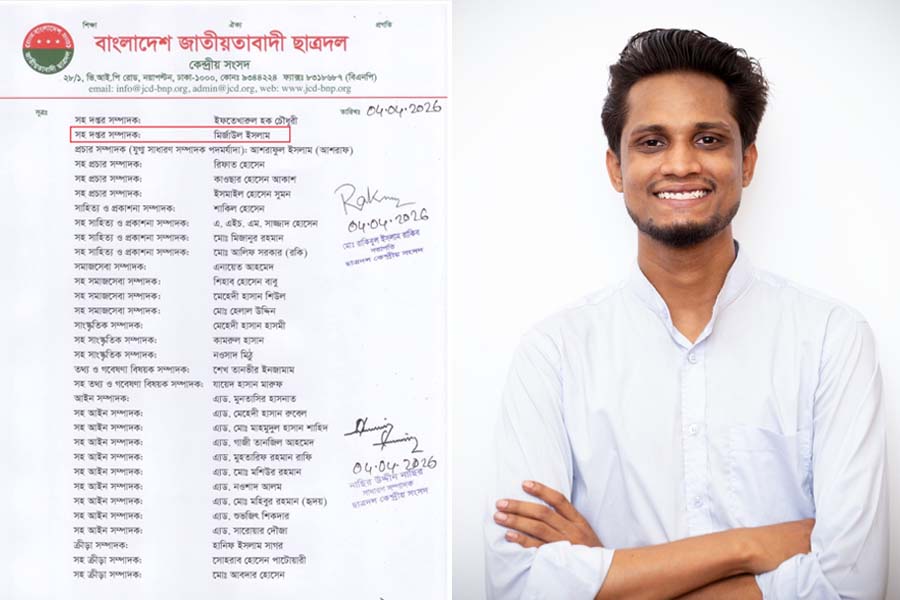 শিক্ষা ঐক্য প্রগতি
বাংলাদেশ জাতীয়তাবাদী ছাত্রদল
কেন্দ্রীয় সংসদ
২৮/১, ভি.আই.পি রোড, নয়াপল্টন, ঢাকা-১০০০, ফোনঃ ৯৩৪৪২২৪ ফ্যাক্সঃ ৮৩১৮৬৮৭ (বিএনপি)
email: info@jcd-bnp.org, admin@jcd.org, web: www.jcd-bnp.org
সূত্রঃ তারিখঃ 04.04.2026
সহ দপ্তর সম্পাদক: ইফতেখারুল হক চৌধুরী
সহ দপ্তর সম্পাদক: মির্জাউল ইসলাম
প্রচার সম্পাদক (যুগ্ম সাধারণ সম্পাদক পদমর্যাদা): আশরাফুল ইসলাম (আশরাফ)
সহ প্রচার সম্পাদক: রিফাত হোসেন
সহ প্রচার সম্পাদক: কাওছার হোসেন আকাশ
সহ প্রচার সম্পাদক: ইসমাইল হোসেন সুমন
সাহিত্য ও প্রকাশনা সম্পাদক: শাকিল হোসেন
সহ সাহিত্য ও প্রকাশনা সম্পাদক: এ. এইচ. এম. সাজ্জাদ হোসেন
04.04.2026
সহ সাহিত্য ও প্রকাশনা সম্পাদক: মোঃ মিজানুর রহমান
মোঃ রাকিবুল ইসলাম রাকিব
সভাপতি
ছাত্রদল কেন্দ্রীয় সংসদ
সহ সাহিত্য ও প্রকাশনা সম্পাদক: মোঃ আলিফ সরকার (রকি)
সমাজসেবা সম্পাদক: এনায়েত আহমেদ
সহ সমাজসেবা সম্পাদক: শিহাব হোসেন বাবু
সহ সমাজসেবা সম্পাদক: মেহেদী হাসান শিউল
সহ সমাজসেবা সম্পাদক: মোঃ হেলাল উদ্দিন
সাংস্কৃতিক সম্পাদক: মেহেদী হাসান হাসমী
সহ সাংস্কৃতিক সম্পাদক: কামরুল হাসান
সহ সাংস্কৃতিক সম্পাদক: নওসাদ মিঠু
তথ্য ও গবেষণা বিষয়ক সম্পাদক: শেখ তানভীর ইনজামাম
সহ তথ্য ও গবেষণা বিষয়ক সম্পাদক: যায়েদ হাসান মারুফ
আইন সম্পাদক: এ্যাড. মুনতাসির হাসনাত
সহ আইন সম্পাদক: এ্যাড. মেহেদী হাসান রুবেল
সহ আইন সম্পাদক: এ্যাড. মোঃ মাহমুদুল হাসান শাহিদ
সহ আইন সম্পাদক: এ্যাড. গাজী তানজিল আহমেদ
সহ আইন সম্পাদক: এ্যাড. মুহতারিফ রহমান রাফি
04.04.2026
সহ আইন সম্পাদক: এ্যাড. মোঃ মশিউর রহমান
নাছির উদ্দীন নাছির
সাধারণ সম্পাদক
ছাত্রদল কেন্দ্রীয় সংসদ
সহ আইন সম্পাদক: এ্যাড. নওশাদ আলম
সহ আইন সম্পাদক: এ্যাড. মোঃ মহিবুর রহমান (হৃদয়)
সহ আইন সম্পাদক: এ্যাড. শুভজিৎ শিকদার
সহ আইন সম্পাদক: এ্যাড. সারোয়ার দৌজা
ক্রীড়া সম্পাদক: হানিফ ইসলাম সাগর
সহ ক্রীড়া সম্পাদক: সোহরাব হোসেন পাটোয়ারী
সহ ক্রীড়া সম্পাদক: মোঃ আবদার হোসেন